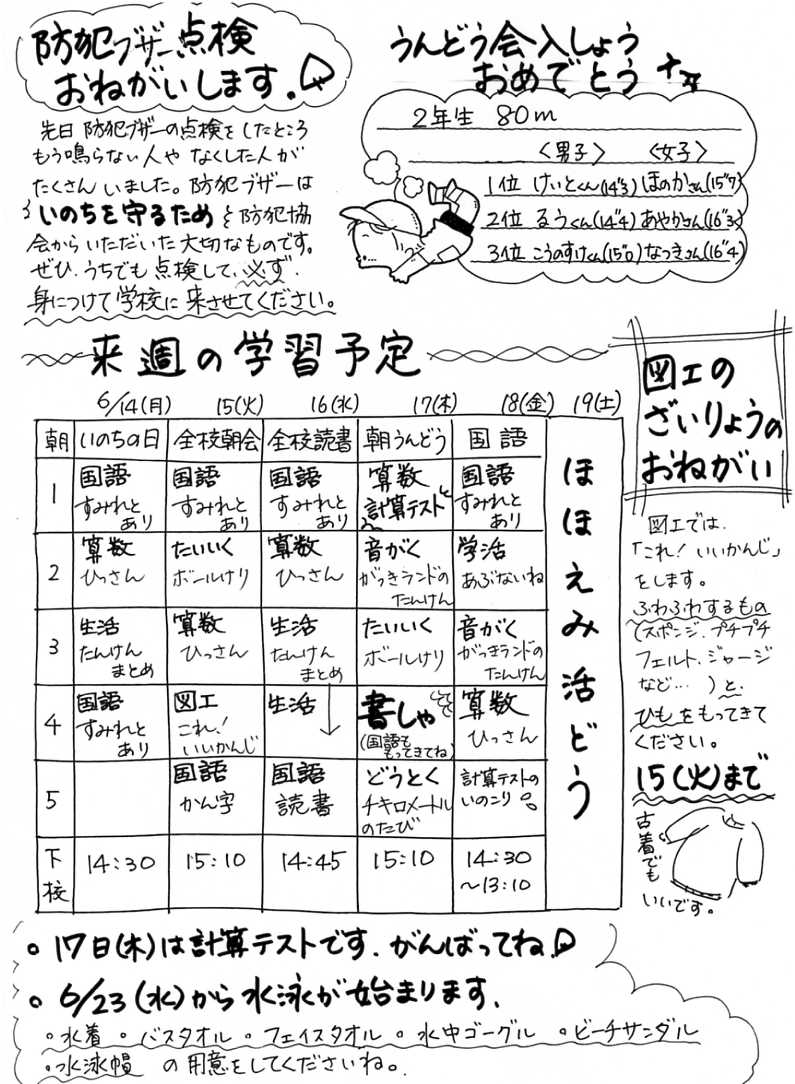 防犯ブザー点検
おねがいします。
先日 防犯ブザーの点検をしたところ
もう鳴らない人や なくした人が
たくさん いました。防犯ブザーは
いのちを守るため と防犯協
会から いただいた 大切なものです。
ぜひ、うちでも 点検して、必ず、
身につけて 学校に 来させてください。
うんどう会入しょう
おめでとう
2年生 80m
〈男子〉 〈女子〉
1位 けいとくん(14"3) ほのかさん(15"7)
2位 るうくん(14"4) あやかさん(16"3)
3位 こうのすけくん(15"0) なつきさん(16"4)
来週の学習予定
6/14(月) 15(火) 16(水) 17(木) 18(金) 19(土)
朝 いのちの日 全校朝会 全校読書 朝うんどう 国語
1 国語 国語 国語 算数 国語
すみれと すみれと すみれと 計算テスト すみれと
あり あり あり あり
2 算数 たいいく 算数 音がく 学活
ひっさん ボールけり ひっさん がっきランドの あぶないね
たんけん
3 生活 算数 生活 たいいく 音がく
たんけん ひっさん たんけん ボールけり がっきランドの
まとめ まとめ たんけん
4 国語 図工 生活 書しゃ 算数
すみれと これ! ↓ (国語も ひっさん
あり いいかんじ もってきてね)
5 国語 国語 どうとく 計算テストの
かん字 読書 チキロメートル いのこり
のたび
下校 14:30 15:10 14:45 15:10 14:30
～13:10
ほほえみ活どう
図工の
ざいりょうの
おねがい
図工では、
「これ! いいかんじ」
をします。
ふわふわするもの
(スポンジ、プチプチ
フェルト、ジャージ
など… )と、
ひもをもってきて
ください。
15(火)まで
古着でも
いいです。
○ 17日(木)は計算テストです。がんばってね
○ 6/23(水)から水泳が始まります。
○水着 ○バスタオル ○フェイスタオル ○水中ゴーグル ○ビーチサンダル
○水泳帽 の用意をしてくださいね。